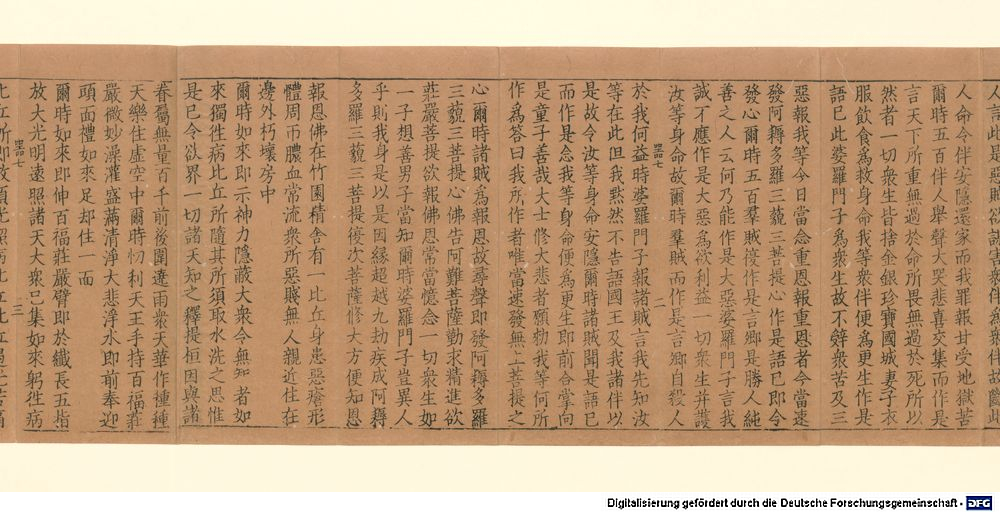 人命今伴安隱還家而我罪報甘受地獄苦
爾時五百伴人舉聲大哭悲喜交集而作是
言天下所重無過於命所畏無過於死所以
然者一切衆生皆捨金銀珍寶國城妻子衣
服飲食爲救身命我等衆伴便爲更生作是
語已此婆羅門子爲衆生故不辤衆苦及三
惡報我等今日當念重恩報重恩者今當速
發阿耨多羅三藐三菩提心作是語已即令
發心爾時五百羣賊復作是言卿是勝人純
善之人云何乃能作是大惡婆羅門子言我
誠不應作是大惡爲欲利益一切衆生并護
汝等身命故爾時羣賊而作是言卿自殺人
器七 二
於我何益時婆羅門子報諸賊言我先知汝
等在此但我黙然不告語國王及我諸伴以
是故令汝等身命安隱爾時諸賊聞是語已
而作是念我等身命便爲更生即前合掌向
是童子善哉大士修大悲者願勑我等何所
作爲荅曰我所作者唯當速發無上菩提之
心爾時諸賊爲報恩故尋聲即發阿耨多羅
三藐三菩提心佛告阿難菩薩勤求精進欲
莊嚴菩提欲報佛恩常當憶念一切衆生如
一子相善男子當知爾時婆羅門子豈異人
乎則我身是以是因緣超越九劫疾成阿耨
多羅三藐三菩提復次菩薩修大方便知恩
報恩佛在竹園精舍有一比丘身患惡瘡形
體周帀膿血常流衆所惡賤無人親近住在
邊外朽壞房中
爾時如來即示神力隱蔽大衆令無知者如
來獨徃病比丘所隨其所須取水洗之思惟
是已令欲界一切諸天知之釋提桓因與諸
器七 三
眷屬無量百千前後圍遶雨衆天華作種種
天樂住虛空中爾時忉利天王手持百福莊
嚴微妙澡灌盛滿清淨大悲淨水即前奉迎
頭面禮如來足却住一面
爾時如來即伸百福莊嚴臂即於纖長五指
放大光明遠照諸天大衆已集如來躬徃病
Digitalisierung gefördert durch die Deutsche Forschungsgemeinschaft - DFG